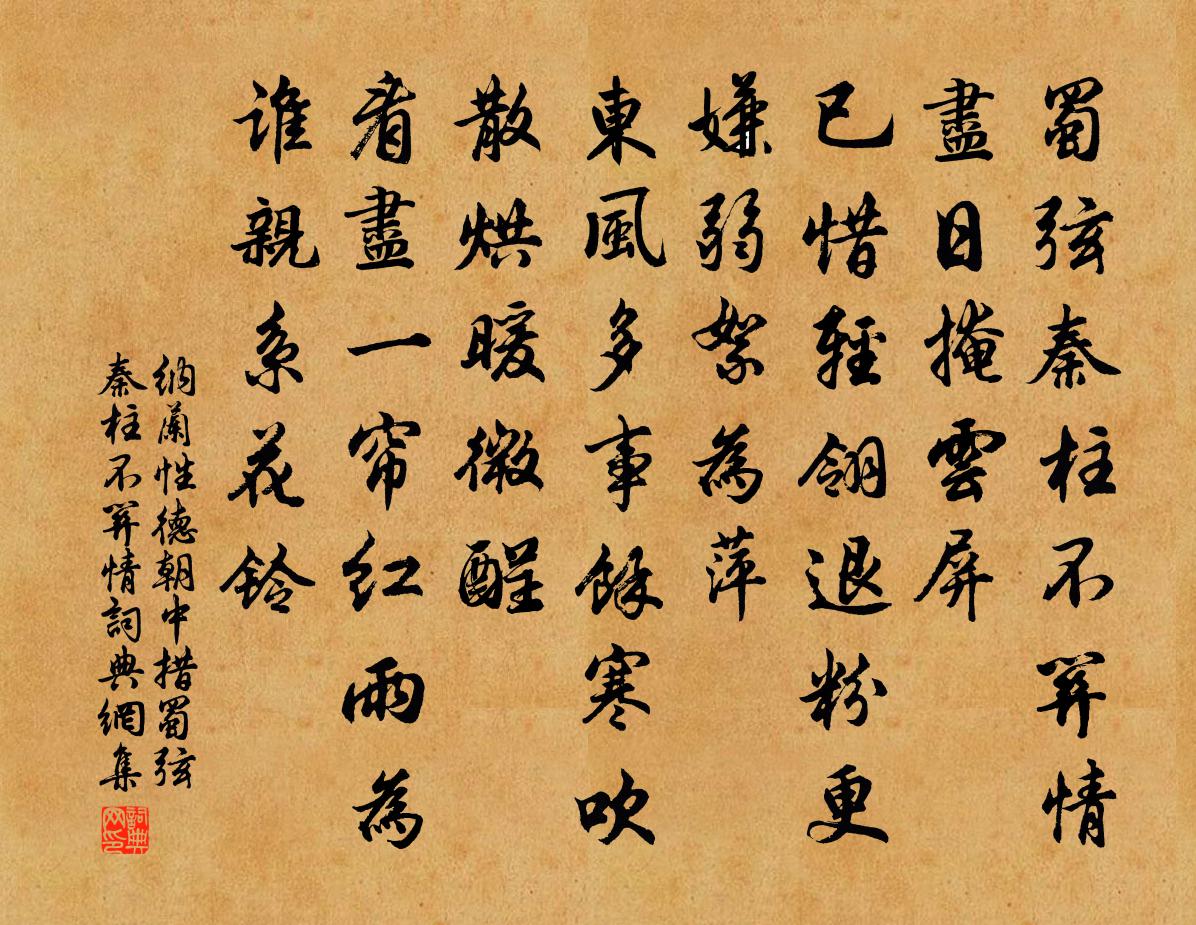 蜀弦秦柱不關情
盡日掩雲屏
已惜輕翎退粉更
嫌弱絮為萍
東風多事餘寒吹
散烘暖微酲
看盡一帘紅雨為
誰親系花鈴
納蘭性德朝中措蜀弦
秦柱不關情詞典網集
詞典
网印